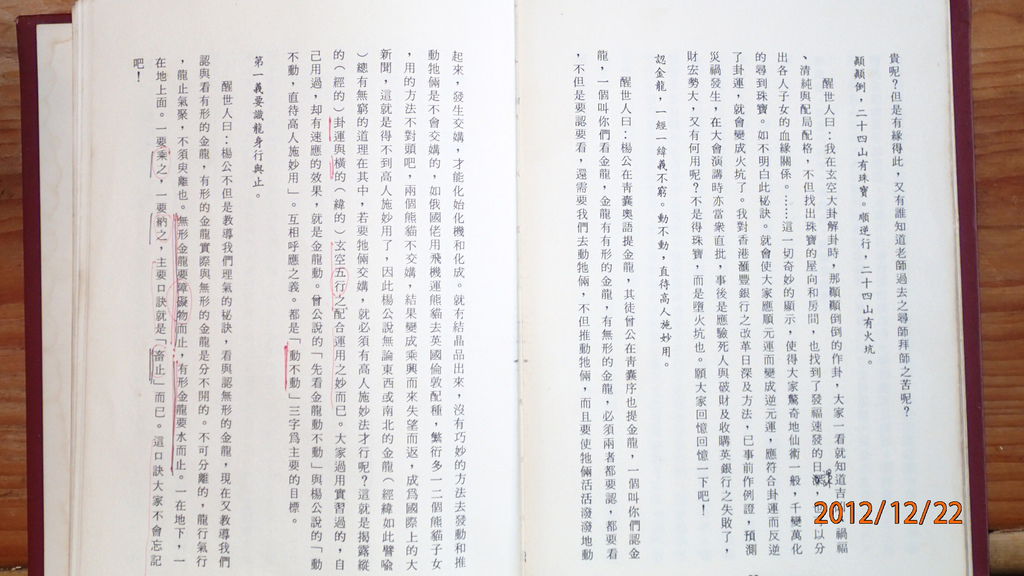 貴呢?但是有緣得此,又有誰知道老師過去之尋師拜師之苦呢?
顚顚倒,二十四山有珠寶。順逆行,二十四山有火坑。
醒世人曰:我在玄空大卦解卦時,那顚顚倒倒的作卦,大家一看就知道吉 禍福
、清純與配局配格,不但找出珠寶的屋向和房間,也找到了發福速發的日 以分
出各人子女的血緣關係。……這一切奇妙的顯示,使得大家驚奇地仙術一般,千變萬化
的尋到珠寶。如不明白此秘訣。就會使大家應順元運而變成逆元運,應符合卦運而反逆
了卦運,就會變成火坑了。我對香港滙豐銀行之改革日深及方法,已事前作例證,預測
災禍發生,在大會演講時亦當衆直批,事後是應驗死人與破財及收購英銀行之失敗了,
財宏勢大,又有何用呢?不是得珠寶,而是墮火坑也。願大家回憶回憶一下吧!
認金龍,一經一緯義不窮。動不動,直待高人施妙用。
醒世人曰:楊公在靑囊奧語提金龍,其徒曾公在靑囊序也提金龍,一個叫你們認金
龍,一個叫你們看金龍,金龍有有形的金龍,有無形的金龍,必須兩者都要認,都要看
,不但是要認要看,還需要我們去動牠倆,不但推動牠倆,而且要使牠倆活活潑潑地動
起來,發生交媾,才能化始化機和化成。就有結晶品出來,沒有巧妙的方法去發動和推
動牠倆是不會交媾的,如俄國佬用飛機運熊貓去英國倫敦配種,繁衍多一二個熊貓子女
,用的方法不對頭吧,兩個熊貓不交媾,結果變成乘興而來失望而返,成爲國際上的大
新聞,這就是得不到高人施妙用了,因此楊公說無論東西或南北的金龍(經緯如此譬喩
)總有無窮的道理在其中,若要牠倆交媾,就必須有高人施妙法才行呢?這就是揭露縱
的(經的)卦運與橫的(緯的)玄空五行之配合運用之妙而巳。大家過用實習過的,自
己用過,却有速應的效果,就是金龍動。曾公說的「先看金龍動不動」與楊公說的「動
不動,直待高人施妙用」。互相呼應之義。都是「動不動」三字爲主要的目標。
第一義要識龍身行與止。
醒世人曰:楊公不但是教導我們理氣的秘訣,看與認無形的金龍,現在又教導我們
認與看有形的金龍,有形的金龍實際與無形的金龍是分不開的。不可分離的,龍行氣行
,龍止氣聚,不須臾離也。無形金龍要障礙物而止,有形金龍要水而止。一在地下,一
在地上面。一要乘之,一要納之,主要口訣就是「畜止」而巳。這口訣大家不會忘記
吧!
2012/12/22